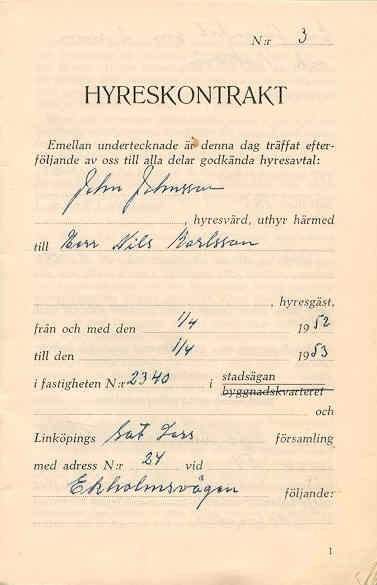 N:r 3
HYRESKONTRAKT
Emellan undertecknade är denna dag träffat efter-
följande av oss till alla delar godkända hyresavtal:
John Johnsson
, hyresvärd, uthyr härmed
till Herr Nils Karlsson
, hyresgäst,
från och med den 1/4 1952
till den 1/4 1953
i fastigheten N:r 2340 i stadsägan
byggnadskvarteret
och
Linköpings Sat Lars församling
med adress N:r 24 vid
Ekholmsvägen följande:
1